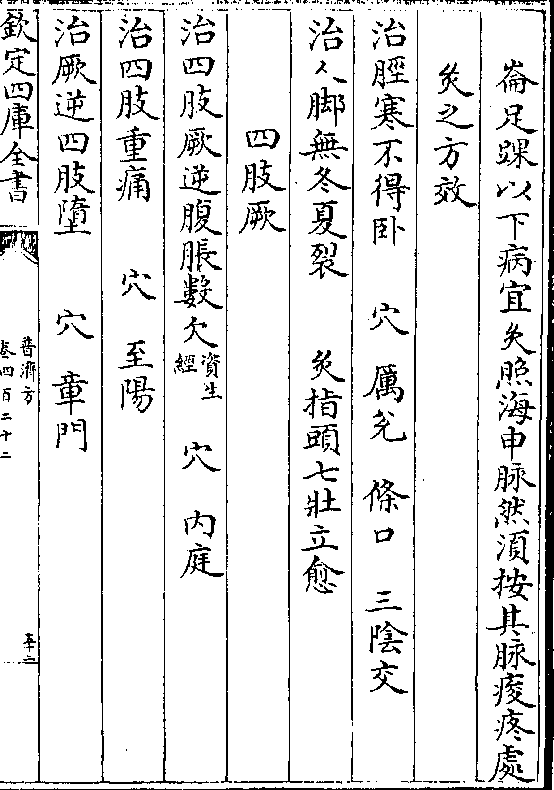 崙足踝以下病宜灸照海申脉然須按其脉痠疼處
灸之方效
治脛寒不得卧 穴 厲兊 條口 三陰交
治人脚無冬夏裂 灸指頭七壯立愈
四肢厥
治四肢厥逆腹脹數欠資生經 穴 内庭
治四肢重痛 穴 至陽
治厥逆四肢墮 穴 章門
欽定四庫全書
普濟方
卷四百二十二